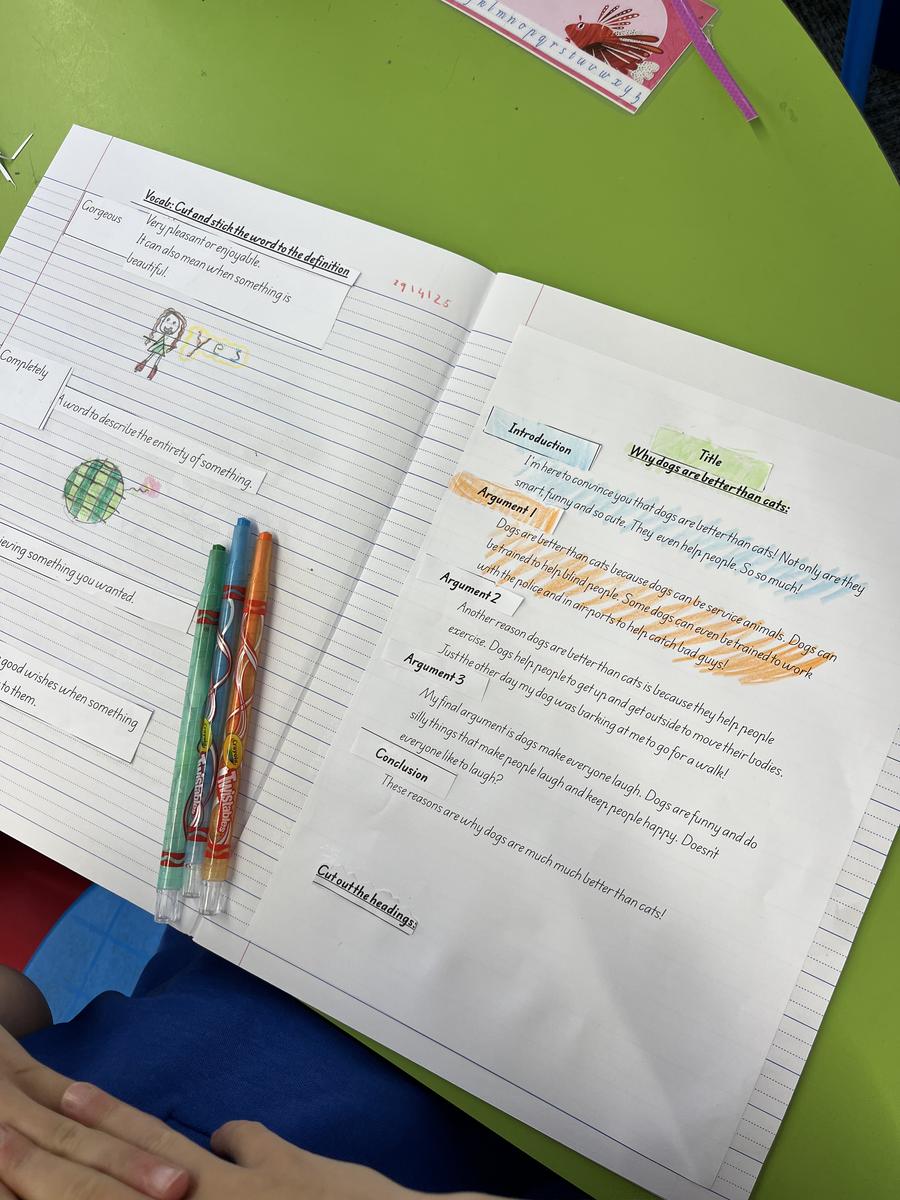 k l m n o p q r s t u v w x y z
Vocab: Cut and stick the word to the definition
Gorgeous
Very pleasant or enjoyable.
It can also mean when something is
beautiful.
29/4/25
yes
Completely
A word to describe the entirety of something.
something you wanted.
good wishes when something
to them.
Title
Why dogs are better than cats:
Introduction
I'm here to convince you that dogs are better than cats! Not only are they
smart, funny and so cute. They even help people. So so much!
Argument 1
Dogs are better than cats because dogs can be service animals. Dogs can
be trained to help blind people. Some dogs can even be trained to work
with the police and in airports to help catch bad guys!
Argument 2
Another reason dogs are better than cats is because they help people
exercise. Dogs help people to get up and get outside to move their bodies.
Just the other day my dog was barking at me to go for a walk!
Argument 3
My final argument is dogs make everyone laugh. Dogs are funny and do
silly things that make people laugh and keep people happy. Doesn't
everyone like to laugh?
Conclusion
These reasons are why dogs are much much better than cats!
Cut out the headings:
Crayola
Twistables
Crayola
Twistables